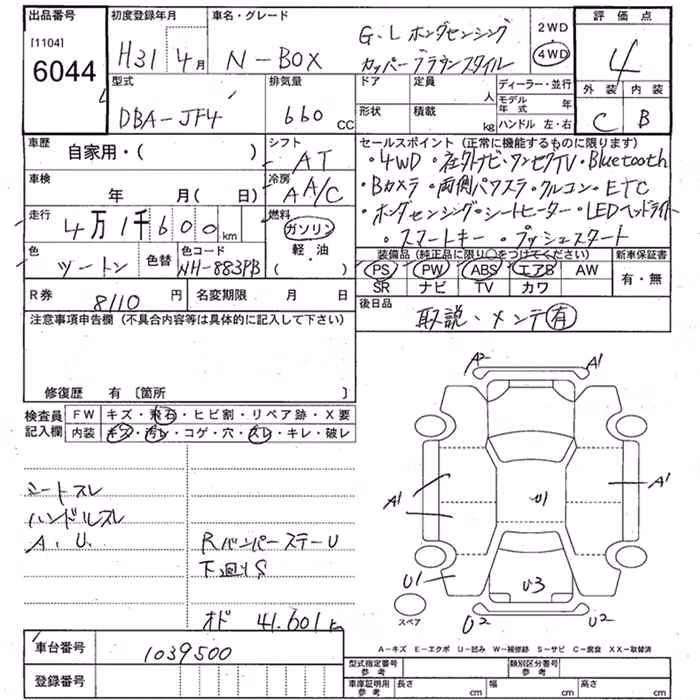 出品番号 初度登録年月 車名・グレード 評価点
[1104] 6044
H31 4月 N-BOX G・L ホンダセンシング カッパーブラウンスタイル 2WD 4WD 4
外装 内装
C B
型式 排気量 ドア 定員 人 ディーラー・並行
DBA-JF4 660 CC 形状 積載 kg モデル年式 年
ハンドル 左・右
車歴 自家用・( ) シフト AT
セールスポイント (正常に機能するものに限ります)
・4WD ・社外ナビ・ワンセグTV・Bluetooth
車検 年 月( 日) 冷房 AA/C
・Bカメラ ・両側パワスラ・クルコン・ETC
走行 4万1千600km 燃料 ガソリン 軽・油 ( )
・ホンダセンシング・シートヒーター・LEDヘッドライト
・スマートキー・プッシュスタート
色 ツートン 色替 色コード NH-883PB
装備品 (純正品に限り○をつけてください) 新車保証書
PS PW ABS エアB AW 有・無
SR ナビ TV カワ
R券 8110円 名変期限 月 日
後日品 取説、メンテ有
注意事項申告欄 (不具合内容等は具体的に記入して下さい)
修復歴 有 〔箇所 〕
検査員記入欄 FW キズ・飛石・ヒビ割・リペア跡・X要
内装 キズ・汚レ・コゲ・穴・スレ・キレ・破レ
シートスレ
ハンドルスレ
A、U、
RバンパーステーU
下廻りS
オド 41,601k
A2 A1
A1 U1 A1
U1 U3
U2 U2
スペア
A-キズ E-エクボ U-凹み W-補修跡 S-サビ C-腐食 XX-取替済
車台番号 1039500
登録番号
型式指定番号 参考 類別区分番号 参考
車庫証明用 参考 長さ cm 幅 cm 高さ cm